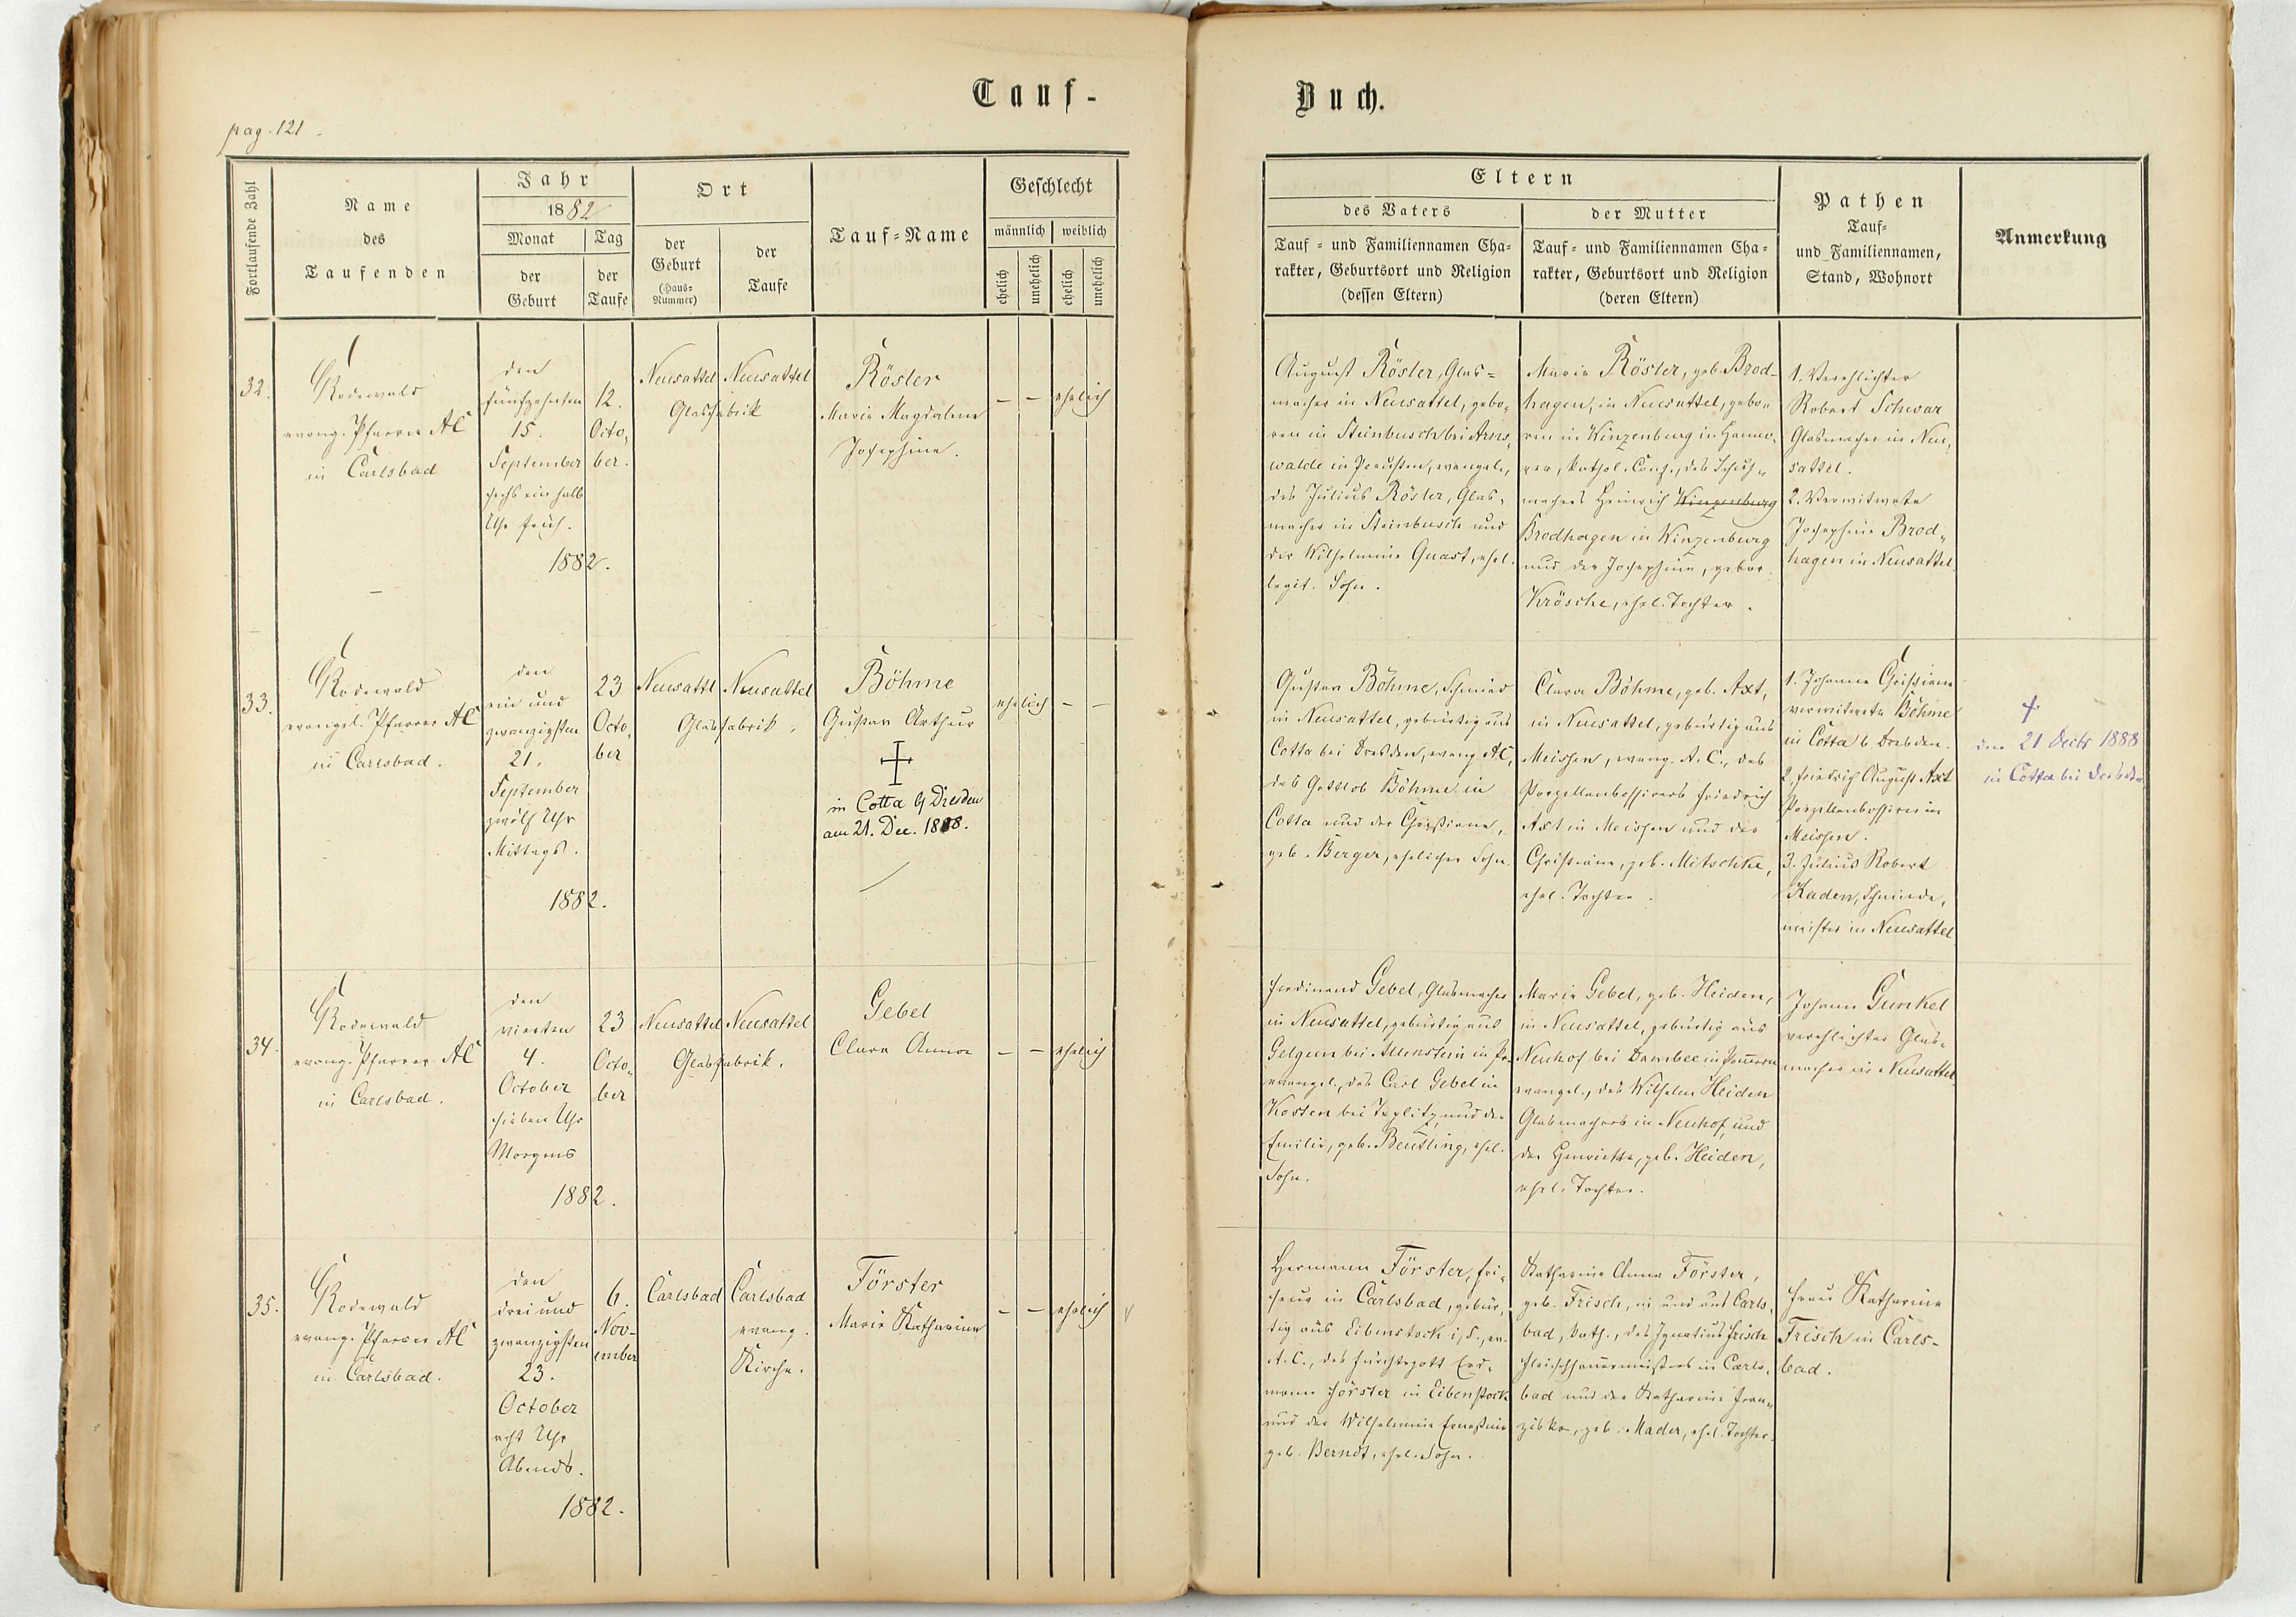 Tauf-
Buch.
pag. 121.
Fortlaufende Zahl
Name
des
Taufenden
Jahr
1882
Monat
der
Geburt
Tag
der
Taufe
Ort
der
Geburt
(Haus-
Nummer)
der
Taufe
Tauf-Name
Geschlecht
männlich
weiblich
ehelich
unehelich
ehelich
unehelich
Eltern
des Vaters
Tauf- und Familiennamen Cha-
rakter, Geburtsort und Religion
(dessen Eltern)
der Mutter
Tauf- und Familiennamen Cha-
rakter, Geburtsort und Religion
(deren Eltern)
Pathen
Tauf-
und Familiennamen,
Stand, Wohnort
Anmerkung
32.
Rodewald
evang. Pfarrer AC
in Carlsbad
den
fünfzehnten
15.
September
sechs ein halb
Uhr früh.
1882.
12.
Octo-
ber.
Neusattel Neusattel
Glasfabrik
Rösler
Marie Magdalene
Josephine.
– – ehelich
August Rösler, Glas-
macher in Neusattel, gebo-
ren in Steinbusch bei Arns-
walde in Preußen, evangel.,
des Julius Rösler, Glas-
macher in Steinbusch und
der Wilhelmine Quast, ehel.
legit. Sohn.
Marie Rösler, geb. Brod-
hagen, in Neusattel, gebo-
ren in Winzenburg in Hanno-
ver, kathol. Conf., des Schuh-
machers Heinrich Winzenburg
Brodhagen in Winzenburg
und der Josephine, gebor.
Krösche, ehel. Tochter.
1. Verehlichter
Robert Schwar
Glasmacher in Neu-
sattel.
2. Verwitwete
Josephine Brod-
hagen in Neusattel.
33.
Rodewald
evangel. Pfarrer AC
in Carlsbad.
den
ein und
zwanzigsten
21.
September
zwölf Uhr
Mittags.
1882.
23
Octo-
ber
Neusattl Neusattel
Glasfabrik.
Böhme
Gustav Arthur
in Cotta b/ Dresden
am 21. Dec. 1888.
ehelich – –
Gustav Böhme, Schmied
in Neusattel, gebürtig aus
Cotta bei Dresden, evang AC,
des Gottlob Böhme in
Cotta und der Christiane,
geb. Berger, ehelicher Sohn.
Clara Böhme, geb. Axt,
in Neusattel, gebürtig aus
Meissen, evang. A. C., des
Porzellanbossirers Friedrich
Axt in Meissen und der
Christiane, geb. Mitschke,
ehel. Tochter.
1. Johanne Christiane
verwitwete Böhme
in Cotta b Dresden.
2. Friedrich August Axt
Porzellanbossirer in
Meissen.
3. Julius Robert
Kaden, Schmiede-
meister in Neusattel
†
den 21 Decbr 1888
in Cotta bei Dresden
34.
Rodewald
evang. Pfarrer AC
in Carlsbad.
den
vierten
4.
October
sieben Uhr
Morgens
1882.
23
Octo-
ber
Neusattel Neusattel
Glasfabrik.
Gebel
Clara Anna
– – ehelich
Ferdinand Gebel, Glasmacher
in Neusattel, gebürtig aus
Gelgun bei Allenstein in Pr.
evangel., des Carl Gebel in
Kosten bei Teplitz und der
Emilie, geb. Beutling, ehel.
Sohn.
Marie Gebel, geb. Heiden,
in Neusattel, gebürtig aus
Neuhof bei Dambee in Pommern
evangel., des Wilhelm Heiden
Glasmachers in Neuhof und
der Henriette, geb. Heiden,
ehel. Tochter.
Johann Gunkel
verehlichter Glas-
macher in Neusattel
35.
Rodewald
evang. Pfarrer AC
in Carlsbad.
den
drei und
zwanzigsten
23.
October
acht Uhr
Abends.
1882.
6.
Nov-
ember
Carlsbad
Carlsbad
evang.
Kirche.
Förster
Marie Katharine
– – ehelich
Hermann Förster, Fri-
seur in Carlsbad, gebür-
tig aus Eibenstock i/S., ev.
A. C., des Fürchtegott Erd-
mann Förster in Eibenstock
und der Wilhelmine Ernestine
geb. Berndt, ehel. Sohn.
Katharine Anna Förster,
geb. Frisch, in und aus Carls-
bad, kath., des Ignatius Frisch
Fleischhauermeisters in Carls-
bad und der Katharine Fran-
ziska, geb. Mader, ehel. Tochter.
Frau Katharine
Frisch in Carls-
bad.